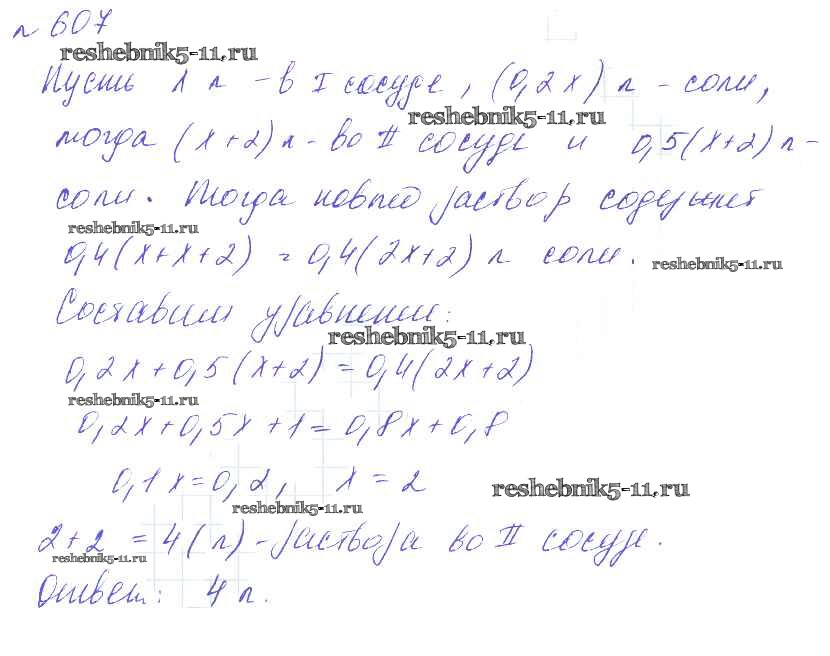 № 607
reshebnik5-11.ru
Пусть x л - в I сосуде, (0,2x) л - соли,
reshebnik5-11.ru
тогда (x+2) л - во II сосуде и 0,5(x+2) л -
соли. Тогда новый раствор содержит
reshebnik5-11.ru
0,4(x+x+2) = 0,4(2x+2) л соли.
reshebnik5-11.ru
Составим уравнение:
reshebnik5-11.ru
0,2x+0,5(x+2)=0,4(2x+2)
reshebnik5-11.ru
0,2x+0,5x+1=0,8x+0,8
0,1x=0,2, x=2
reshebnik5-11.ru
reshebnik5-11.ru
2+2 = 4(л) - раствора во II сосуде.
reshebnik5-11.ru
Ответ: 4 л.